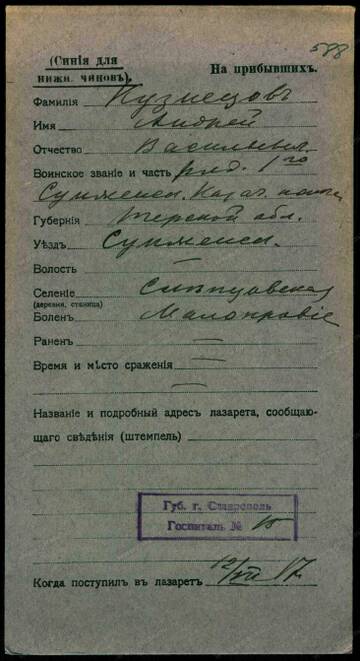 588
(Синія для
нижн. чиновъ).
На прибывшихъ.
Фамилія Кузнецовъ
Имя Андрей
Отчество Васильев.
Воинское званіе и часть ряд. 1го
Сунженск. Казач. полка
Губернія Терской обл.
Уѣздъ Сунженск.
Волость —
Селеніе Слѣпцовская
(деревня, станица)
Боленъ Малокровіе
Раненъ —
Время и мѣсто сраженія —
—
Названіе и подробный адресъ лазарета, сообщаю-
щаго свѣдѣнія (штемпель)
Губ. г. Ставрополь
Госпиталь № 15
Когда поступилъ въ лазаретъ 12/VII 17.